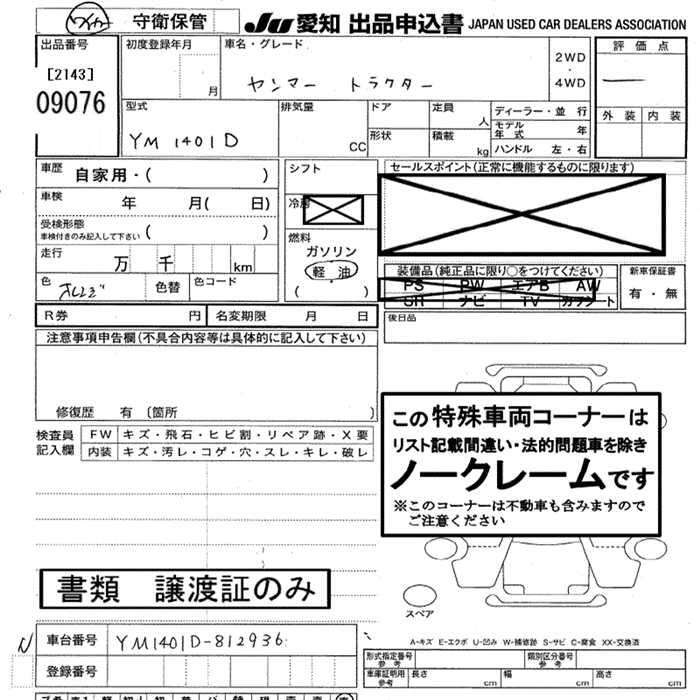 守衛保管
JU 愛知 出品申込書 JAPAN USED CAR DEALERS ASSOCIATION
出品番号
[2143]
09076
初度登録年月
月
車名・グレード
ヤンマー トラクター
2WD
・
4WD
評価点
外装 内装
型式
YM1401D
排気量
CC
ドア
形状
定員
人
積載
kg
ディーラー・並行
モデル年式 年
ハンドル 左・右
車歴 自家用・( )
車検 年 月( 日)
受検形態
車検付きのみ記入して下さい ( )
走行 万 千 km
色 オレンジ 色替 色コード
R券 円 名変期限 月 日
シフト
冷房
燃料
ガソリン
軽油
( )
セールスポイント(正常に機能するものに限ります)
装備品(純正品に限り○をつけてください)
PS PW エアB AW
SR ナビ TV カワシート
新車保証書
有・無
後日品
注意事項申告欄(不具合内容等は具体的に記入して下さい)
修復歴 有 〔箇所 〕
検査員記入欄
FW キズ・飛石・ヒビ割・リペア跡・X要
内装 キズ・汚レ・コゲ・穴・スレ・キレ・破レ
この特殊車両コーナーは
リスト記載間違い・法的問題車を除き
ノークレームです
※このコーナーは不動車も含みますので
ご注意ください
書類 譲渡証のみ
スペア
A-キズ E-エクボ U-凹み W-補修跡 S-サビ C-腐食 XX-交換済
N 車台番号 YM1401D-812936
登録番号
形式指定番号
参考
類別区分番号
参考
車庫証明用
参考
長さ cm 幅 cm 高さ cm